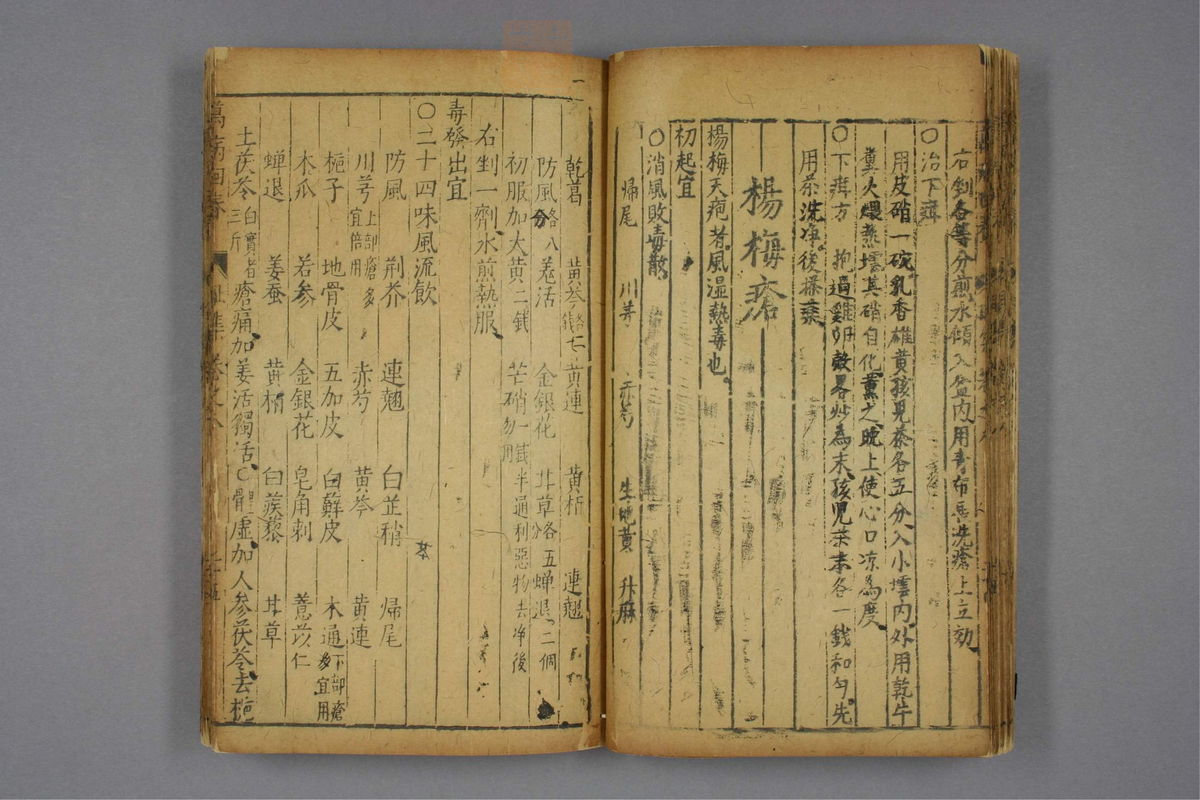 右剉各等分煎水傾入盆內用青布馬洗瘡上立効
〇治下疳
用皮硝一碗乳香雄黃孩兒茶各五分入小壜內外用乾牛
糞火煨熱壜其硝自化薰之晚上使心口凉為度
〇下疳方 抱過雞卵殼畧炒為末孩兒茶末各一錢和勻先
用茶洗凈後搽藥
楊梅瘡
楊梅天疱者風湿熱毒也
初起宜
〇消風敗毒散
帰尾 川芎 赤芍 生地黃 升麻
乾葛 黃芩各七 黃連 黃栢 連翹
防風各八分 羗活 金銀花 甘草各五分 蟬退二個
初服加大黃二錢 芒硝一錢半通利惡物去凈後勿用
右剉一劑水煎熱服
毒發出宜
〇二十四味風流飲
防風 荆芥 連翹 白芷稍 帰尾
川芎上部瘡多宜倍用 赤芍 黃芩 黃連
梔子 地骨皮 五加皮 白蘚皮 木通下部瘡多宜用
木瓜 苦参 金銀花 皂角刺 薏苡仁
蟬退 姜蚕 黃栢 白蒺藜 甘草
土茯苓白實者三斤 瘡痛加羌活獨活〇體虛加人参茯苓去梔
萬病回春